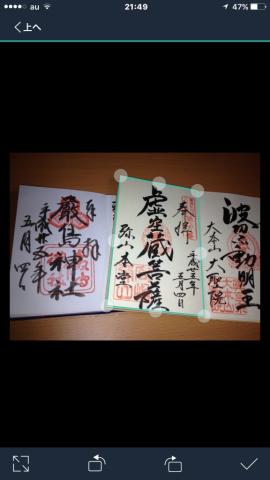 au
21:49
47%
上へ
奉拝
嚴島神社
平成廿五年
五月四日
奉拝
虚空蔵菩薩
弥山本堂
平成廿五年
五月四日
波切不動明王
大本山大聖院